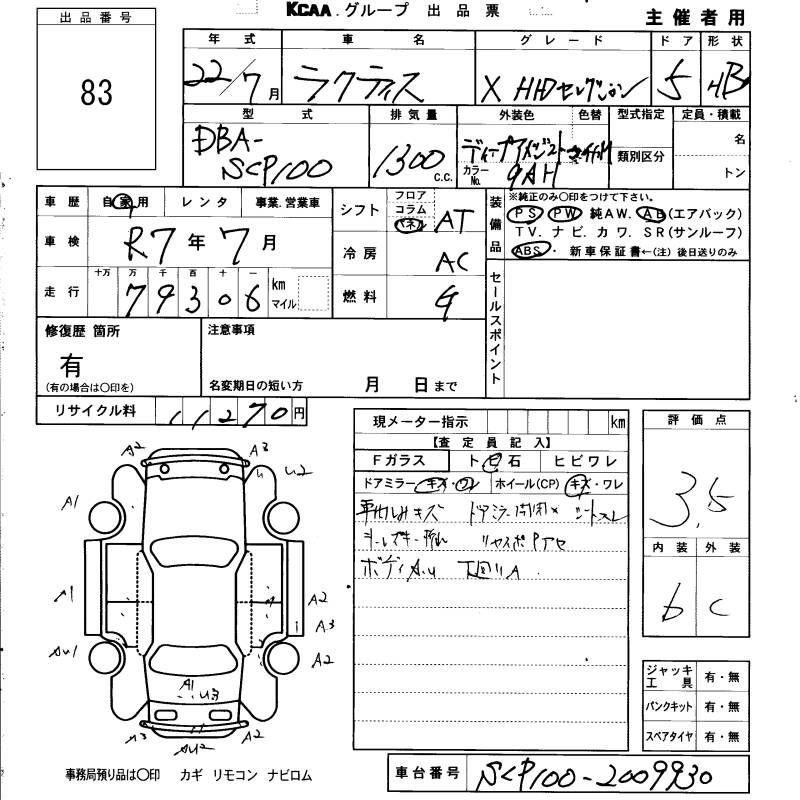 KCAA.グループ 出品票
主催者用
出品番号
83
年式 車名 グレード ドア 形状
22/7月 ラクティス X HIDセレクション 5 HB
型式 排気量 外装色 色替 型式指定 定員・積載
DBA-
SCP100 1300 c.c. カラーNo. 9AH 類別区分 名
トン
車歴 自家用 レンタ 事業.営業車
車検 R7年7月
走行 十万 万 千 百 十 一
79306 km マイル
シフト フロア コラム パネル AT
冷房 AC
燃料 G
装備品 ※純正のみ〇印をつけて下さい。
PS PW 純AW. AB(エアバック)
TV. ナビ. カワ. SR(サンルーフ)
ABS・ 新車保証書←(注)後日送りのみ
セールスポイント
修復歴 箇所
有
(有の場合は〇印を)
注意事項
名変期日の短い方 月 日まで
リサイクル料 11270円
現メーター指示 km
【査定員記入】
Fガラス トビ石 ヒビワレ
ドアミラー キズ・ワレ ホイール(CP) キズ・ワレ
キズ ドアミラー開閉× シートスレ
ボディA.U 下回りA
評価点
3.5
内装 外装
b C
ジャッキ工具 有・無
パンクキット 有・無
スペアタイヤ 有・無
A2 A3 U2
A1
A1 A2
A3
AU1 A2
A1 U3
A3 AU2 A2
事務局預り品は〇印 カギ リモコン ナビロム
車台番号 SCP100-2009930